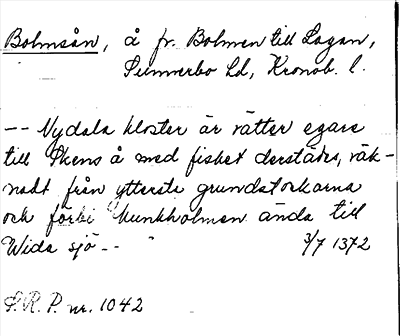 Bolmsån, å fr. Bolmen till Lagan,
Sunnerbo hd, Kronob. l.
-- Nydala kloster är rätter egare
till Skens å med fisket derstädes, räk-
nadt från ytterste grundstockarna
och förbi Munkholmen ända till
Wida sjö -- 3/7 1372
S.R.P. nr. 1042